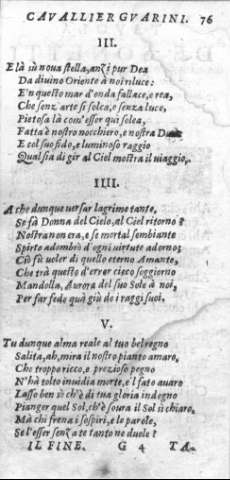 CAVALLIER GVARINI. 76
III.
E là sù noua stella, anzi pur Dea
Da diuino Oriente à noi riluce:
E'n questo mar d'onda fallace, e rea,
Che senz'arte si solca, e senza luce,
Pietosa là com'esser qui solea,
Fatta è nostro nocchiero, e nostra Duce
E col suo fido, e luminoso raggio
Qual sia di gir al Ciel mostra il viaggio.
IIII.
A che dunque versar lagrime tante,
Se fà Donna del Cielo, al Ciel ritorno?
Nostra non era, e se mortal sembiante
Spirto adombrò d'ogni virtute adorno;
Ciò fù voler di quello eterno Amante,
Che trà questo d'error cieco soggiorno
Mandolla, Aurora del suo Sole à noi,
Per far fede quà giù de i raggi suoi.
V.
Tu dunque alma reale al tuo bel regno
Salita, ah, mira il nostro pianto amaro,
Che troppo ricco, e prezioso pegno
N'hà tolto inuidia morte, e'l fato auaro
Lasso ben sì ch'è di tua gloria indegno
Pianger quel Sol, ch'è soura il Sol sì chiaro,
Mà chi frena i sospiri, e le parole,
Se l'esser senza te tanto ne duole?
IL FINE. G 4 TA-